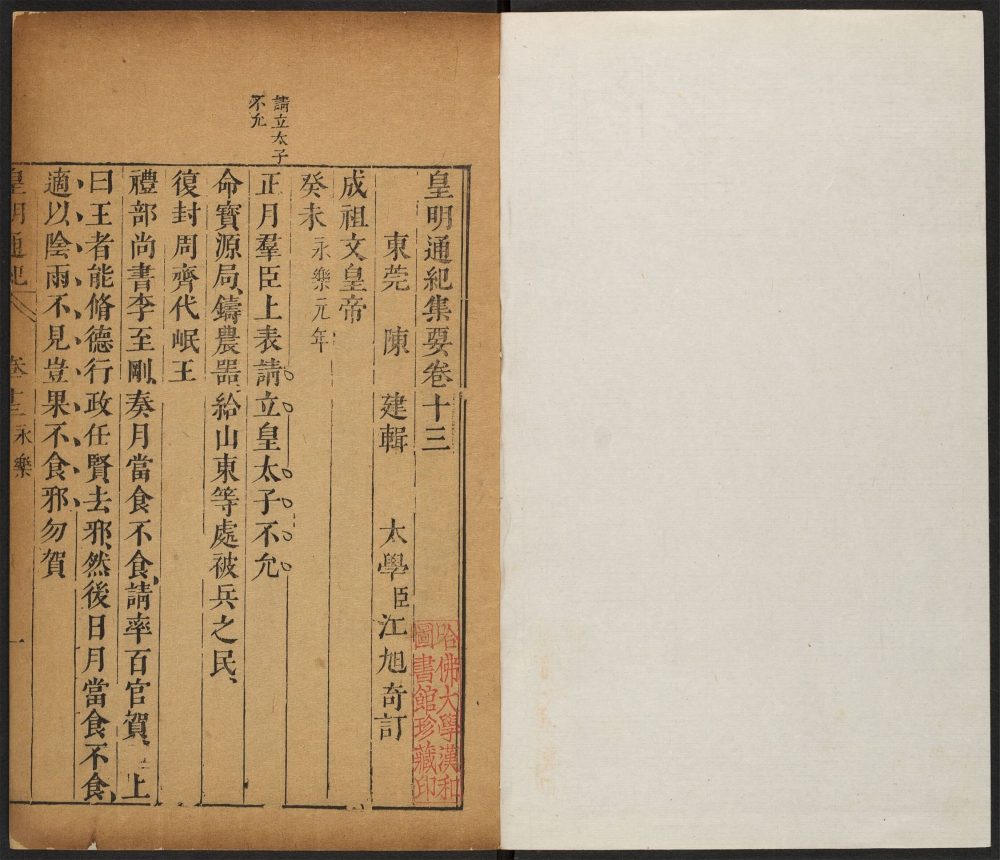 請立太子
不允
皇明通紀集要卷十三
東莞 陳 建輯 太學臣江旭奇訂
成祖文皇帝
癸未永樂元年
正月羣臣上表請立皇太子不允
命寶源局鑄農器給山東等處被兵之民
復封周齊代岷王
禮部尚書李至剛奏月當食不食請率百官賀上
曰王者能脩德行政任賢去邪然後日月當食不食
適以陰雨不見豈果不食邪勿賀
皇明通紀 卷十三永樂 一
哈佛大學漢和
圖書館珍藏印